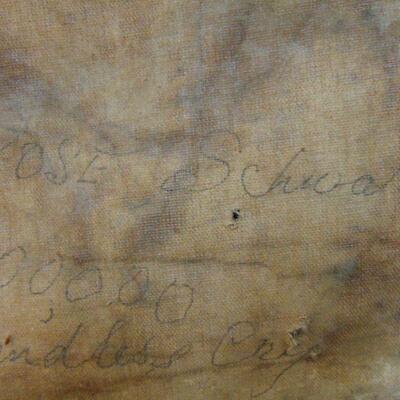 OSE Schwa
00,000
ndless Cry